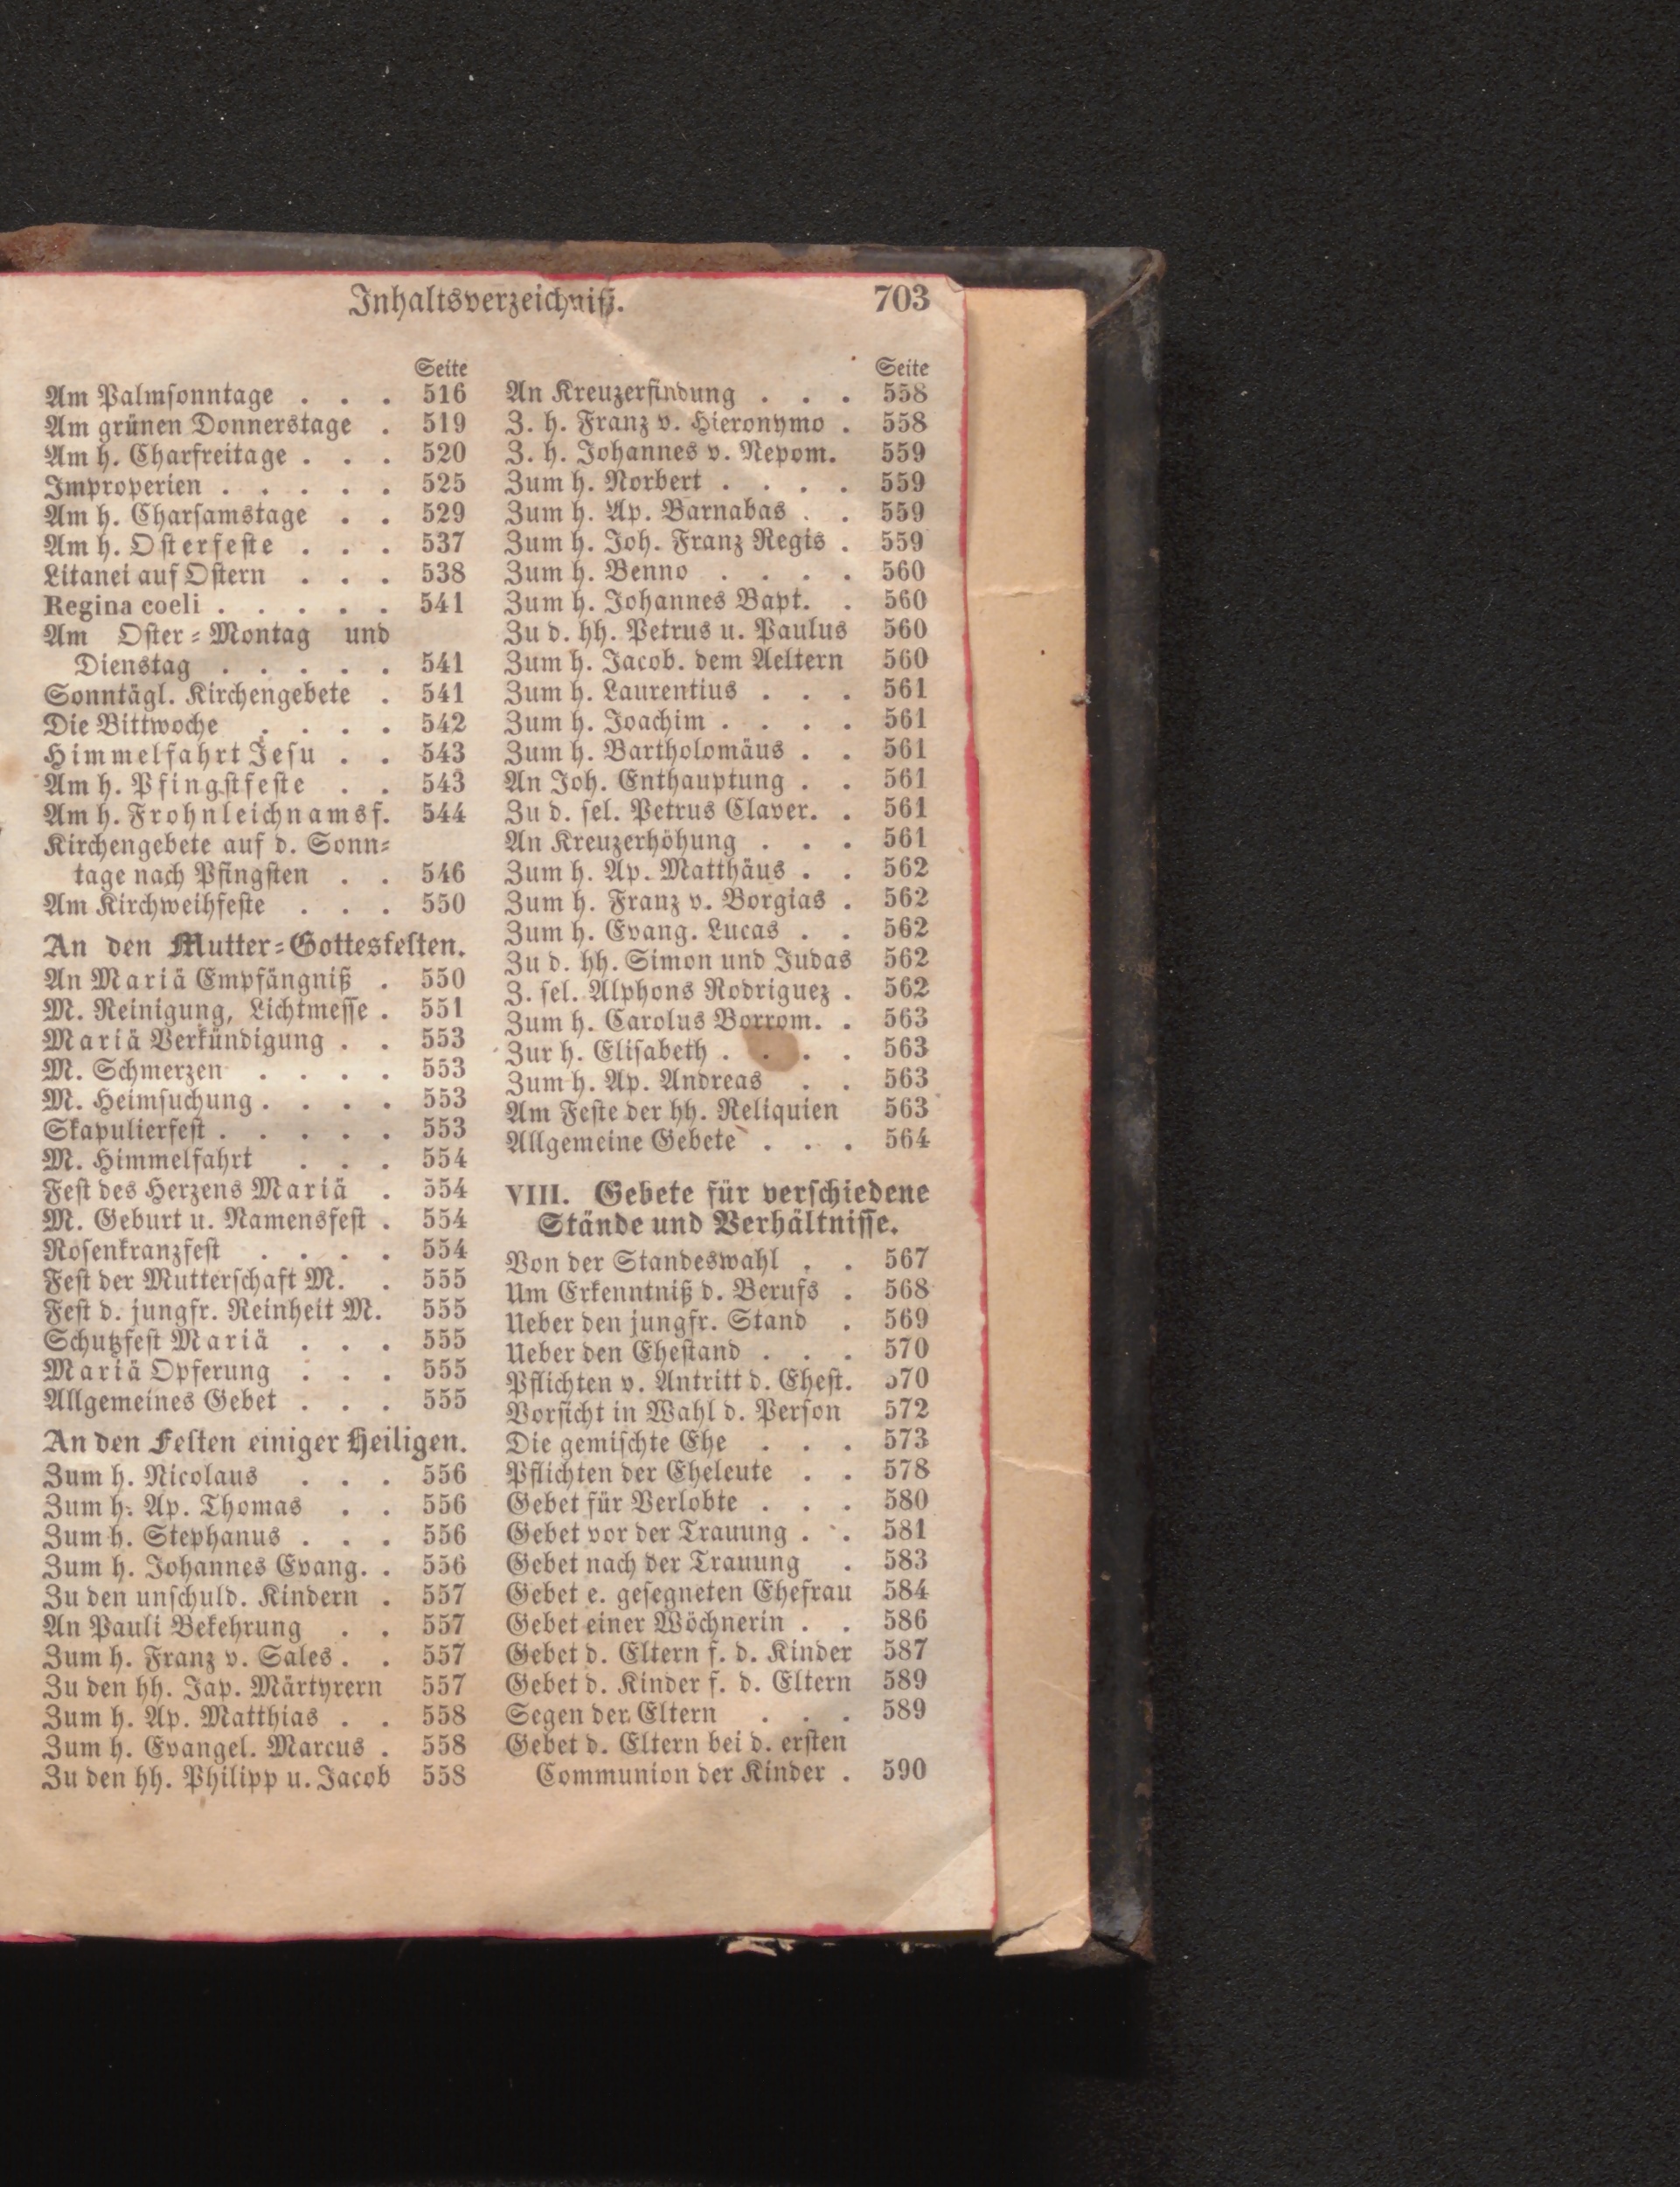 Inhaltsverzeichniß. 703
Seite
Am Palmsonntage . . . 516
Am grünen Donnerstage . 519
Am h. Charfreitage . . . 520
Improperien . . . . . 525
Am h. Charsamstage . . 529
Am h. Osterfeste . . . 537
Litanei auf Ostern . . . 538
Regina coeli . . . . . 541
Am Oster-Montag und
Dienstag . . . . . 541
Sonntägl. Kirchengebete . 541
Die Bittwoche . . . . 542
Himmelfahrt Jesu . . 543
Am h. Pfingstfeste . . 543
Am h. Frohnleichnamsf. 544
Kirchengebete auf d. Sonn-
tage nach Pfingsten . . 546
Am Kirchweihfeste . . . 550
An den Mutter-Gottesfesten.
An Mariä Empfängniß . 550
M. Reinigung, Lichtmesse . 551
Mariä Verkündigung . . 553
M. Schmerzen . . . . 553
M. Heimsuchung . . . . 553
Skapulierfest . . . . . 553
M. Himmelfahrt . . . 554
Fest des Herzens Mariä . 554
M. Geburt u. Namensfest . 554
Rosenkranzfest . . . . 554
Fest der Mutterschaft M. . 555
Fest d. jungfr. Reinheit M. 555
Schutzfest Mariä . . . 555
Mariä Opferung . . . 555
Allgemeines Gebet . . . 555
An den Festen einiger Heiligen.
Zum h. Nicolaus . . . 556
Zum h. Ap. Thomas . . 556
Zum h. Stephanus . . . 556
Zum h. Johannes Evang. . 556
Zu den unschuld. Kindern . 557
An Pauli Bekehrung . . 557
Zum h. Franz v. Sales . . 557
Zu den hh. Jap. Märtyrern 557
Zum h. Ap. Matthias . . 558
Zum h. Evangel. Marcus . 558
Zu den hh. Philipp u. Jacob 558
Seite
An Kreuzerfindung . . . 558
Z. h. Franz v. Hieronymo . 558
Z. h. Johannes v. Nepom. 559
Zum h. Norbert . . . . 559
Zum h. Ap. Barnabas . . 559
Zum h. Joh. Franz Regis . 559
Zum h. Benno . . . . 560
Zum h. Johannes Bapt. . 560
Zu d. hh. Petrus u. Paulus 560
Zum h. Jacob. dem Aeltern 560
Zum h. Laurentius . . . 561
Zum h. Joachim . . . . 561
Zum h. Bartholomäus . . 561
An Joh. Enthauptung . . 561
Zu d. sel. Petrus Claver. . 561
An Kreuzerhöhung . . . 561
Zum h. Ap. Matthäus . . 562
Zum h. Franz v. Borgias . 562
Zum h. Evang. Lucas . . 562
Zu d. hh. Simon und Judas 562
Z. sel. Alphons Rodriguez . 562
Zum h. Carolus Borrom. . 563
Zur h. Elisabeth . . . . 563
Zum h. Ap. Andreas . . 563
Am Feste der hh. Reliquien 563
Allgemeine Gebete . . . 564
VIII. Gebete für verschiedene
Stände und Verhältnisse.
Von der Standeswahl . . 567
Um Erkenntniß d. Berufs . 568
Ueber den jungfr. Stand . 569
Ueber den Ehestand . . . 570
Pflichten v. Antritt d. Ehest. 570
Vorsicht in Wahl d. Person 572
Die gemischte Ehe . . . 573
Pflichten der Eheleute . . 578
Gebet für Verlobte . . . 580
Gebet vor der Trauung . . 581
Gebet nach der Trauung . 583
Gebet e. gesegneten Ehefrau 584
Gebet einer Wöchnerin . . 586
Gebet d. Eltern f. d. Kinder 587
Gebet d. Kinder f. d. Eltern 589
Segen der Eltern . . . 589
Gebet d. Eltern bei d. ersten
Communion der Kinder . 590